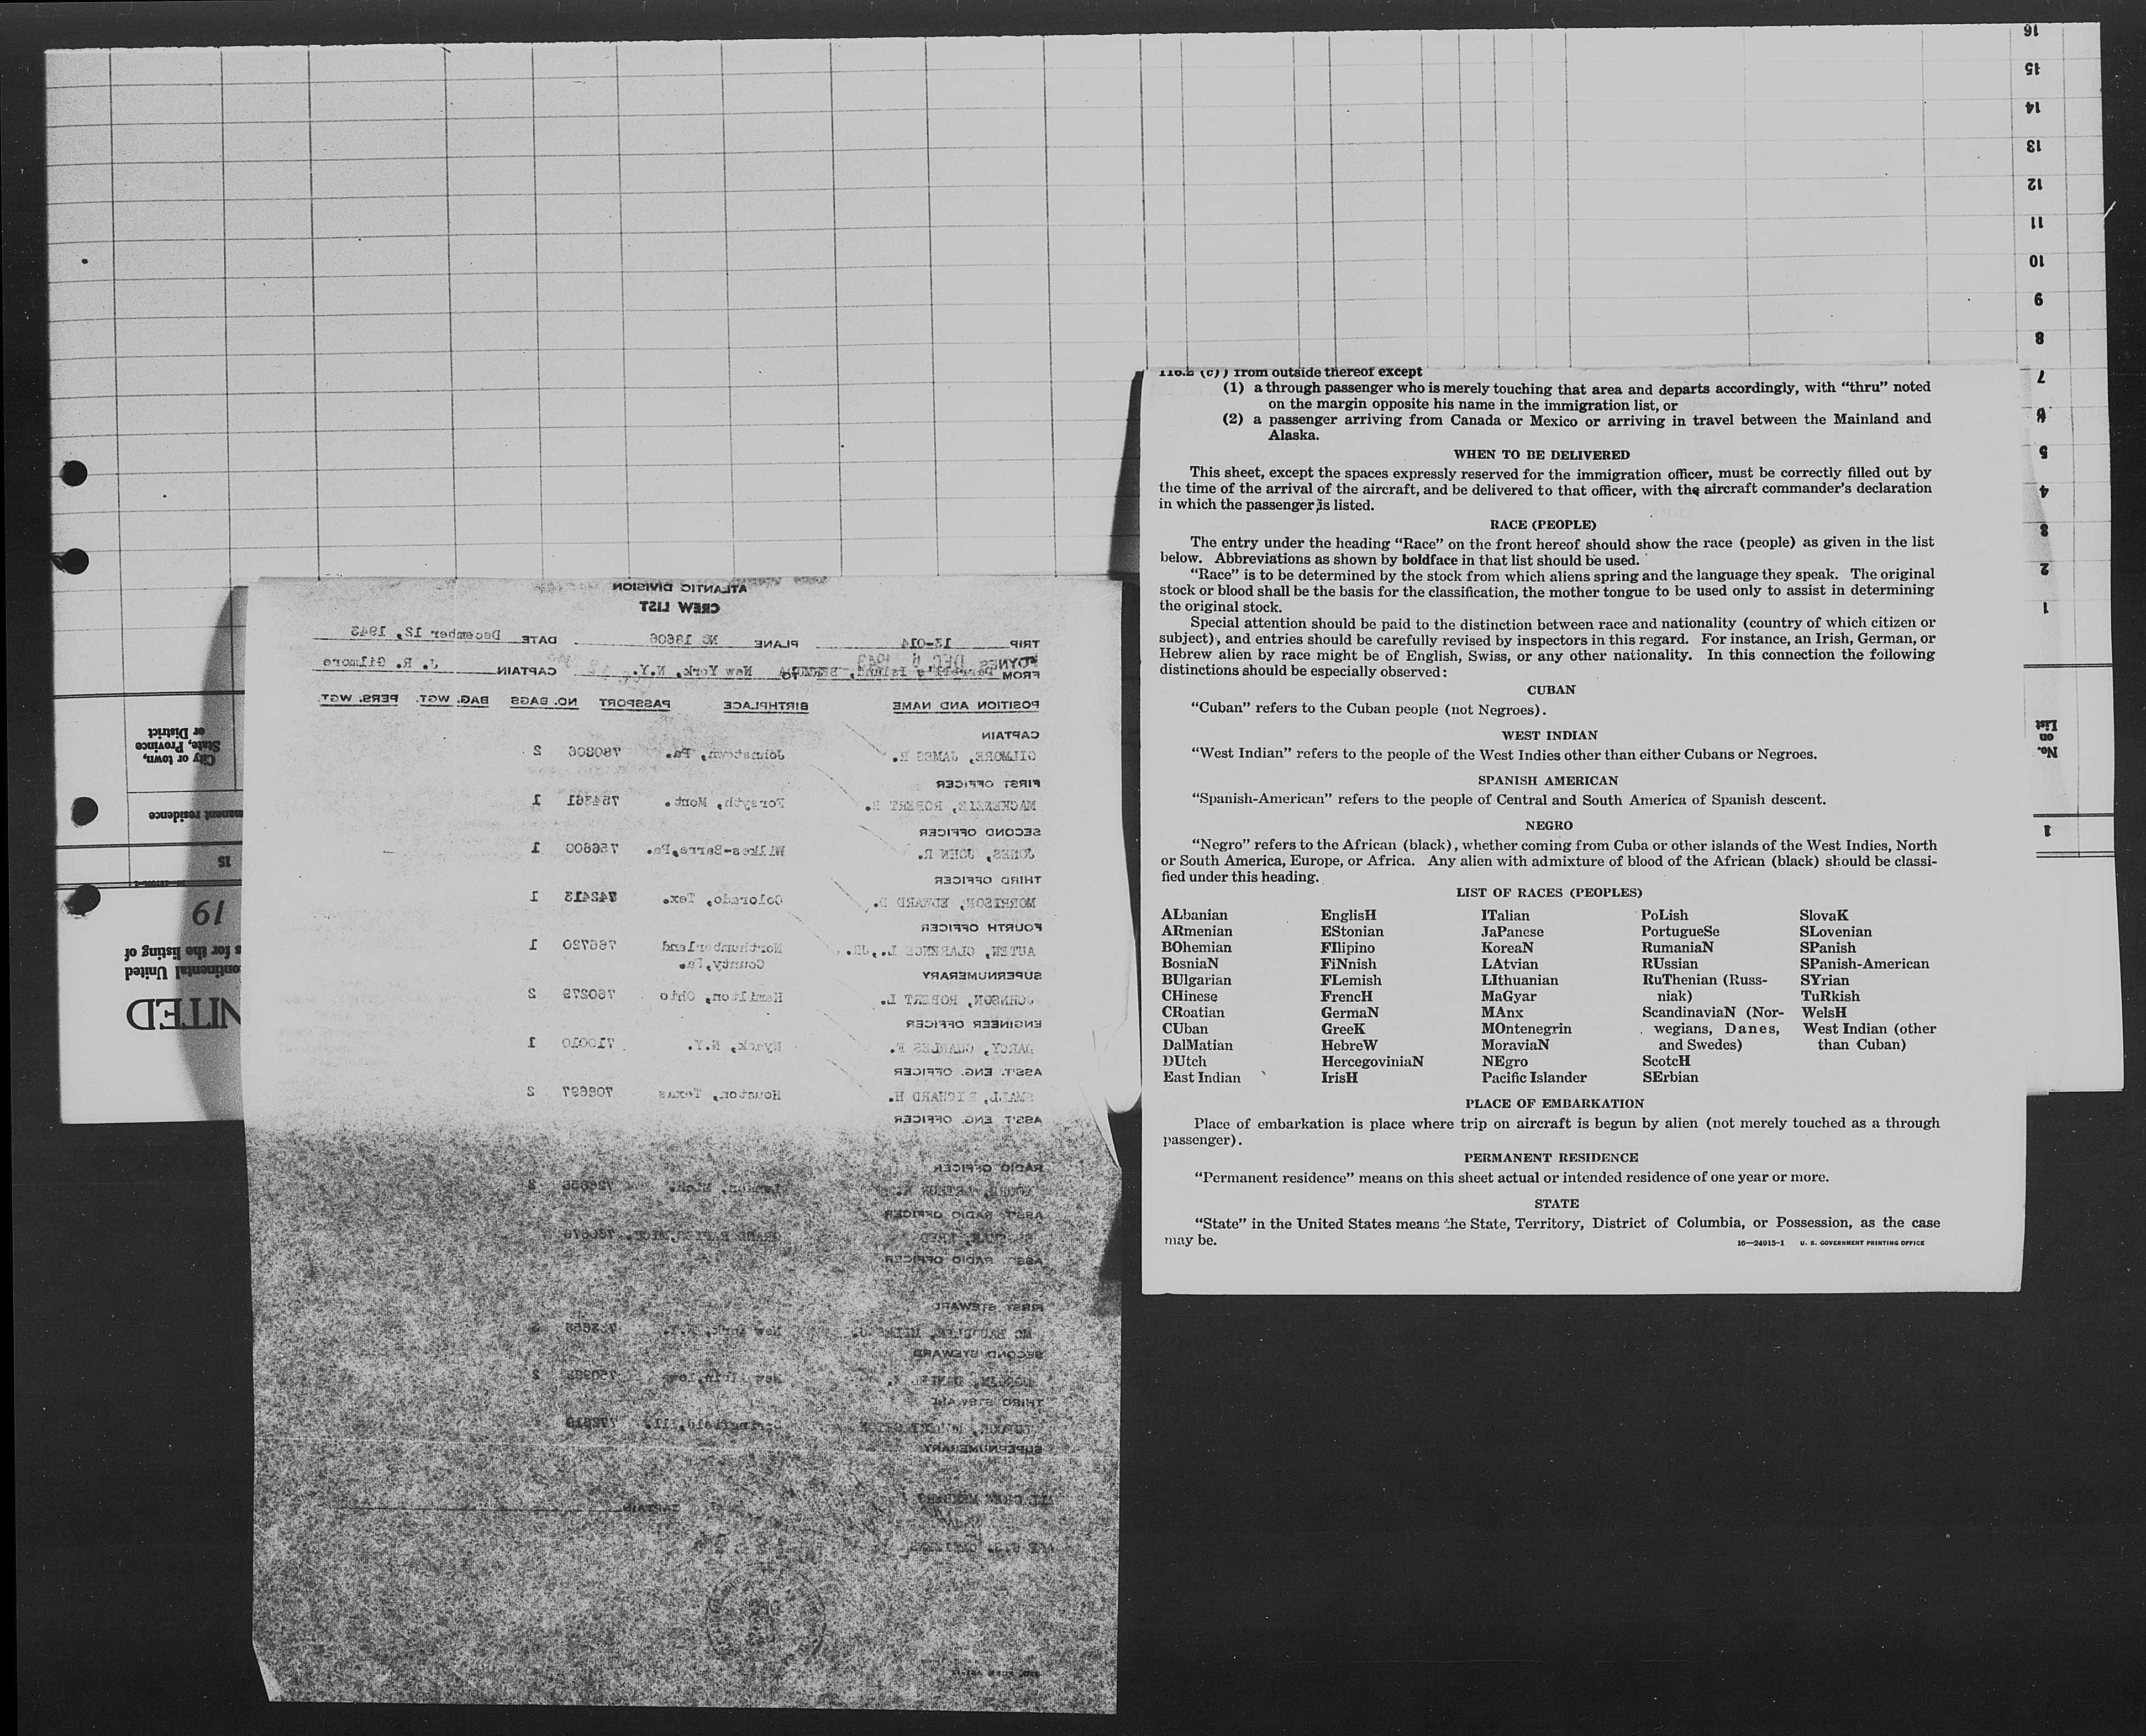 16
15
14
13
12
11
10
9
8
7
6
5
4
3
2
1
No.
on
List
1
City or town,
State, Province
or District
manent residence
15
19
s for the listing of
ontinental United
NITED
ATLANTIC DIVISION
CREW LIST
TRIP 13-014 PLANE NC 18606 DATE December 12, 1943
FOYNES DEC 9 1943
FROM Darrell's Island, BERMUDA TO New York, N.Y. CAPTAIN J. R. Gilmore
POSITION AND NAME BIRTHPLACE PASSPORT NO. BAGS BAG. WGT. PERS. WGT.
CAPTAIN
GILMORE, JAMES R. Johnstown, Pa. 780806 2
FIRST OFFICER
MACKENZIE, ROBERT B. Forsyth, Mont. 754361 1
SECOND OFFICER
JONES, JOHN R. Wilkes-Barre,Pa. 756600 1
THIRD OFFICER
MORRISON, EDWARD D. Colorado, Tex. 742413 1
FOURTH OFFICER
AUTEN, CLARENCE L.,JR. Northumberland 766720 1
County,Pa.
SUPERNUMERARY
JOHNSON, ROBERT L. Hamilton, Ohio 760279 2
ENGINEER OFFICER
DARCY, CHARLES F. Nyack, N.Y. 710010 1
ASS'T. ENG. OFFICER
SMALL, RICHARD H. Houston, Texas 708697 2
ASS'T ENG. OFFICER
RADIO OFFICER
ARTHUR London, Mich. 2
ASS'T RADIO OFFICER
FRED GRAND RAPIDS,MICH.
ASS'T RADIO OFFICER
FIRST STEWARD
New York, N.Y.
SECOND STEWARD
DANIEL New 2
THIRD STEWARD
Springfield,Ill.
SUPERNUMERARY
ALL CREW MEMBERS
CAPTAIN
ARE U.S. CITIZENS
DEC
116.2 (c)) from outside thereof except
(1) a through passenger who is merely touching that area and departs accordingly, with “thru” noted
on the margin opposite his name in the immigration list, or
(2) a passenger arriving from Canada or Mexico or arriving in travel between the Mainland and
Alaska.
WHEN TO BE DELIVERED
This sheet, except the spaces expressly reserved for the immigration officer, must be correctly filled out by
the time of the arrival of the aircraft, and be delivered to that officer, with the aircraft commander’s declaration
in which the passenger is listed.
RACE (PEOPLE)
The entry under the heading “Race” on the front hereof should show the race (people) as given in the list
below. Abbreviations as shown by boldface in that list should be used.
“Race” is to be determined by the stock from which aliens spring and the language they speak. The original
stock or blood shall be the basis for the classification, the mother tongue to be used only to assist in determining
the original stock.
Special attention should be paid to the distinction between race and nationality (country of which citizen or
subject), and entries should be carefully revised by inspectors in this regard. For instance, an Irish, German, or
Hebrew alien by race might be of English, Swiss, or any other nationality. In this connection the following
distinctions should be especially observed:
CUBAN
“Cuban” refers to the Cuban people (not Negroes).
WEST INDIAN
“West Indian” refers to the people of the West Indies other than either Cubans or Negroes.
SPANISH AMERICAN
“Spanish-American” refers to the people of Central and South America of Spanish descent.
NEGRO
“Negro” refers to the African (black), whether coming from Cuba or other islands of the West Indies, North
or South America, Europe, or Africa. Any alien with admixture of blood of the African (black) should be classi-
fied under this heading.
LIST OF RACES (PEOPLES)
ALbanian
ARmenian
BOhemian
BosniaN
BUlgarian
CHinese
CRoatian
CUban
DalMatian
DUtch
East Indian
EnglisH
EStonian
FIlipino
FiNnish
FLemish
FrencH
GermaN
GreeK
HebreW
HercegoviniaN
IrisH
ITalian
JaPanese
KoreaN
LAtvian
LIthuanian
MaGyar
MAnx
MOntenegrin
MoraviaN
NEgro
Pacific Islander
PoLish
PortugueSe
RumaniaN
RUssian
RuThenian (Russ-
niak)
ScandinaviaN (Nor-
wegians, Danes,
and Swedes)
ScotcH
SErbian
SlovaK
SLovenian
SPanish
SPanish-American
SYrian
TuRkish
WelsH
West Indian (other
than Cuban)
PLACE OF EMBARKATION
Place of embarkation is place where trip on aircraft is begun by alien (not merely touched as a through
passenger).
PERMANENT RESIDENCE
“Permanent residence” means on this sheet actual or intended residence of one year or more.
STATE
“State” in the United States means the State, Territory, District of Columbia, or Possession, as the case
may be.
16—24915-1 U. S. GOVERNMENT PRINTING OFFICE